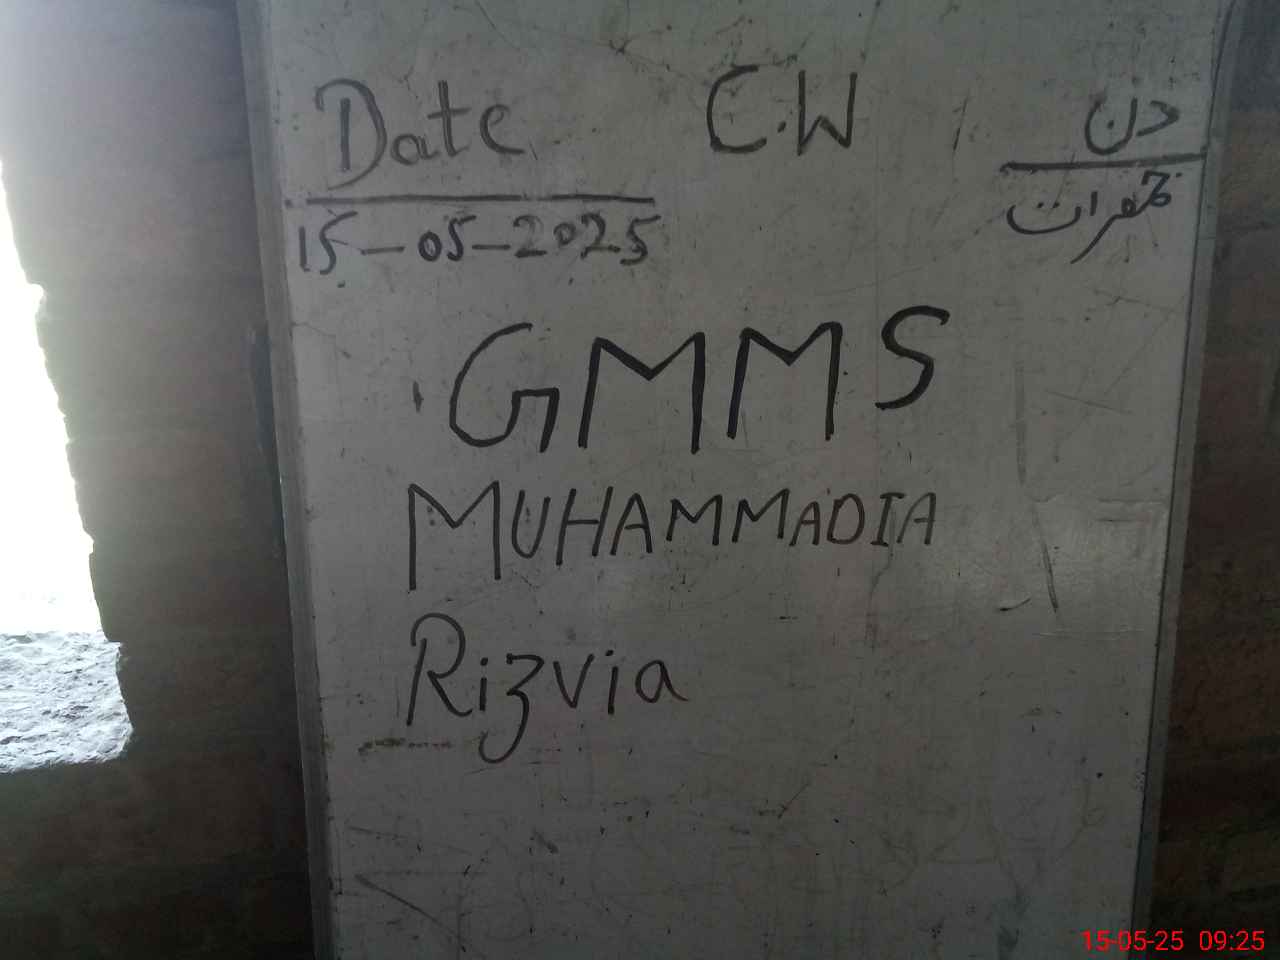 Date C.W دن
15-05-2025 جمعرات
GMMS
MUHAMMADIA
Rizvia
15-05-25 09:25